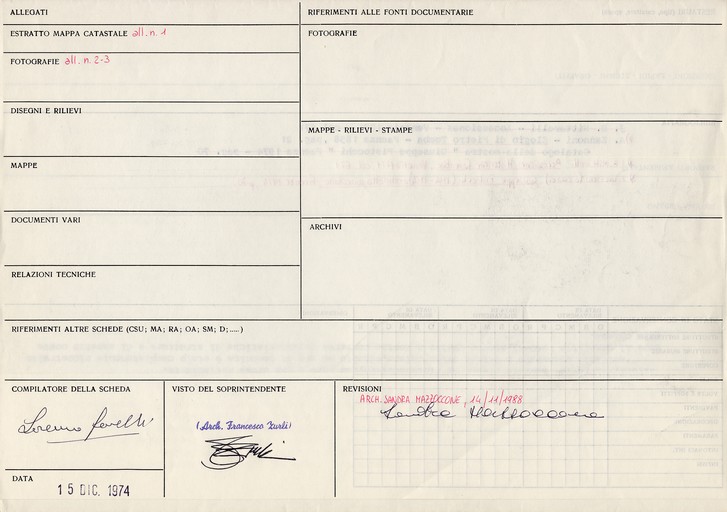 ALLEGATI
ESTRATTO MAPPA CATASTALE all. n. 1
FOTOGRAFIE all. n. 2-3
DISEGNI E RILIEVI
MAPPE
DOCUMENTI VARI
RELAZIONI TECNICHE
RIFERIMENTI ALLE FONTI DOCUMENTARIE
FOTOGRAFIE
MAPPE - RILIEVI - STAMPE
ARCHIVI
RIFERIMENTI ALTRE SCHEDE (CSU; MA; RA; OA; SM; D;.....)
COMPILATORE DELLA SCHEDA
DATA
15 DIC. 1974
VISTO DEL SOPRINTENDENTE
(Arch. Francesco Zurli)
REVISIONI
ARCH. SANDRA MAZZOCCONE, 14/11/1988
Sandra Mazzoccone